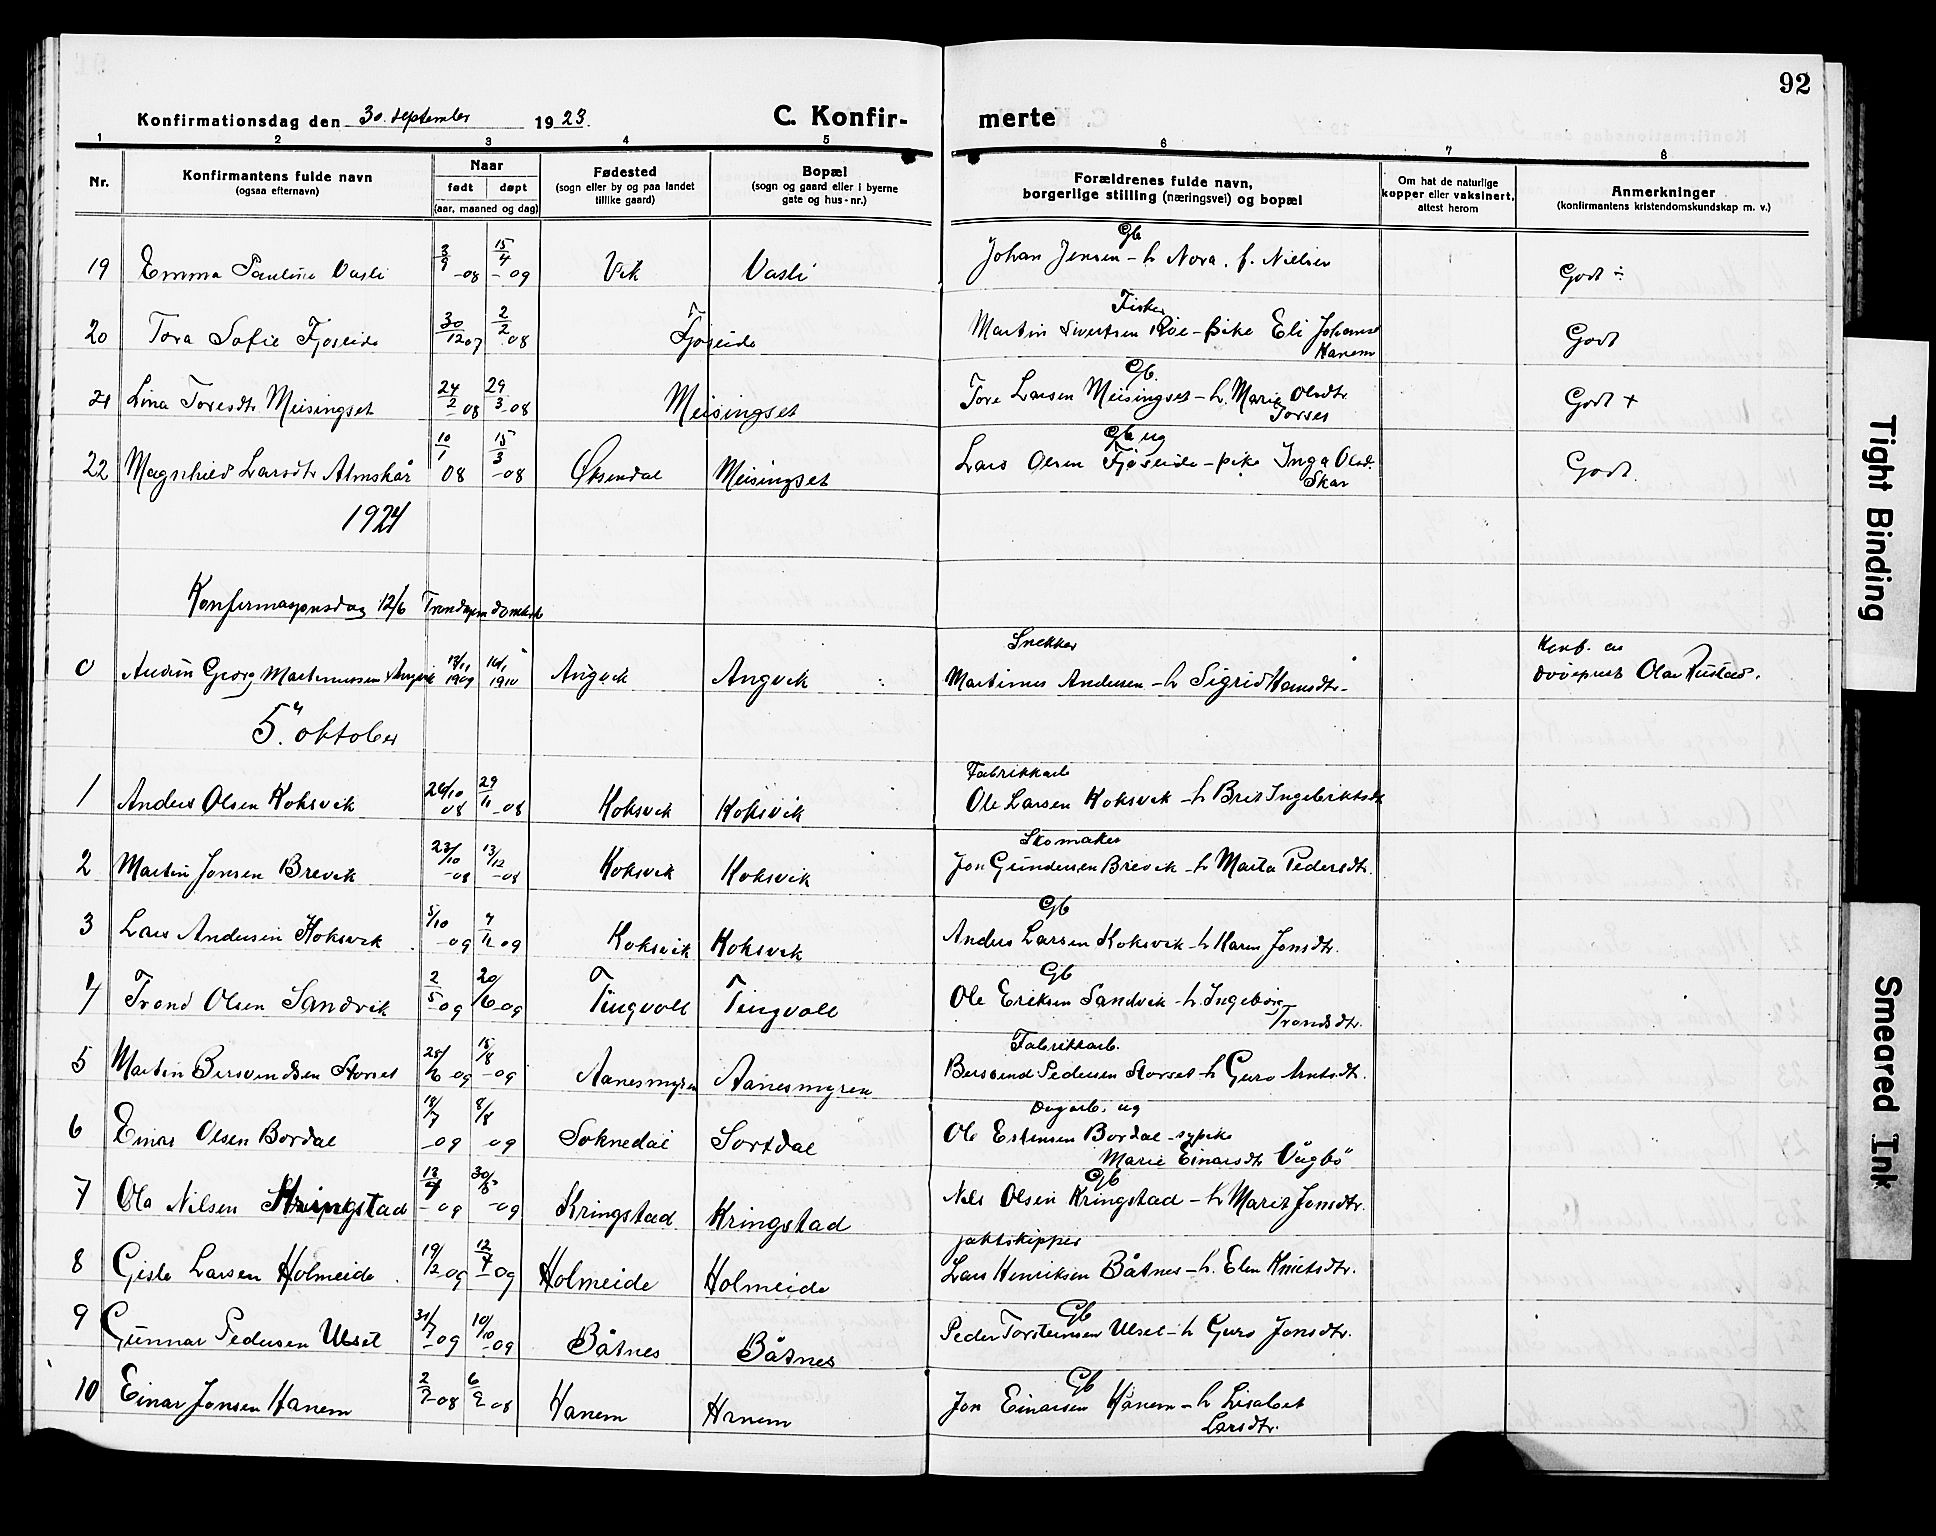 92
Konfirmationsdag den 30. september 1923. C. Konfir- merte
1 2 3 4 5 6 7 8
Nr. Konfirmantens fulde navn (ogsaa efternavn) Naar født døpt (aar, maaned og dag) Fødested (sogn eller by og paa landet tillike gaard) Bopæl (sogn og gaard eller i byerne gate og hus-nr.) Forældrenes fulde navn, borgerlige stilling (næringsvei) og bopæl Om hat de naturlige kopper eller vaksinert, attest herom Anmerkninger (konfirmantens kristendomskundskap m. v.)
Gb
19 Emma Pauline Vasli 3/9 -08 15/4 -09 Vik Vasli Johan Jensen - h Nora, f. Nielsen Godt ÷
Fisker
20 Tora Sofie Fjøseide 30/12 07 2/2 -08 Fjøseide Martin Sivertsen Roe - pike Eli Johanne Hanem Godt
Gb.
21 Lina Toresdtr Meisingset 24/2 -08 29/3 -08 Meisingset Tore Larsen Meisingset - h. Marie Olsdtr Torses Godt +
Gb ug
22 Magnhild Larsdtr Almskår 10/1 08 15/3 -08 Øksendal Meisingset Lars Olsen Fjøseide - pike Inga Olsd. Skar Godt.
1924
Konfirmasjonsdag 12/6 Trondhjem domkirke
Snekker Konf. av
0 Audun Georg Martinussen Angvik 17/11 1909 16/1 1910 Angvik Angvik Martinus Andersen - h Sigrid Hansdtr - døveprest Olav Rustad.
5. oktober
Fabrikkarb
1 Anders Olsen Koksvik 26/10 08 29/11 -08 Koksvik Koksvik Ole Larsen Koksvik - h Brit Ingebriktsdt
Skomaker
2 Martin Jonsen Brevik 23/10 -08 13/12 -08 Koksvik Koksvik Jon Gundersen Brevik - h Marta Pedersdtr.
Gb
3 Lars Andersen Koksvik 5/10 -09 7/11 09 Koksvik Koksvik Anders Larsen Koksvik - h Karen Jonsdtr.
Gb
4 Trond Olsen Sandvik 2/5 -09 20/6 -09 Tingvoll Tingvoll Ole Eriksen Sandvik - h. Ingeborg Trondsdtr.
Fabrikkarb.
5 Martin Bersvendsen Storset 25/6 09 15/8 -09 Aanesmyren Aanesmyren Bersvend Pedersen Storset - h Guro Arntsdtr.
Dagarb. ug
6 Einar Olsen Bordal 18/7 -09 8/8 09 Soknedal Sortdal Ole Estensen Bordal - sypike Marie Einarsdtr Vågbø
Gb
7 Ola Nilsen Kringstad 13/4 -09 30/5 -09 Kringstad Kringstad Nils Olsen Kringstad - h Marit Jonsdtr.
jaktskipper
8 Gisle Larsen Holmeide 19/2 -09 12/4 -09 Holmeide Holmeide Lars Henriksen Båtnes - h. Elen Knutsdtr.
Gb
9 Gunnar Pedersen Ulset 31/7 -09 10/10 -09 Båtnes Båtnes Peder Torsteinsen Ulset - h Guro Jonsdtr.
Gb
10 Einar Jonsen Hanem 2/7 -08 6/9 08 Hanem Hanem Jon Einarsen Hånem - h Lisabet Larsdtr.
Tight Binding
Smeared Ink